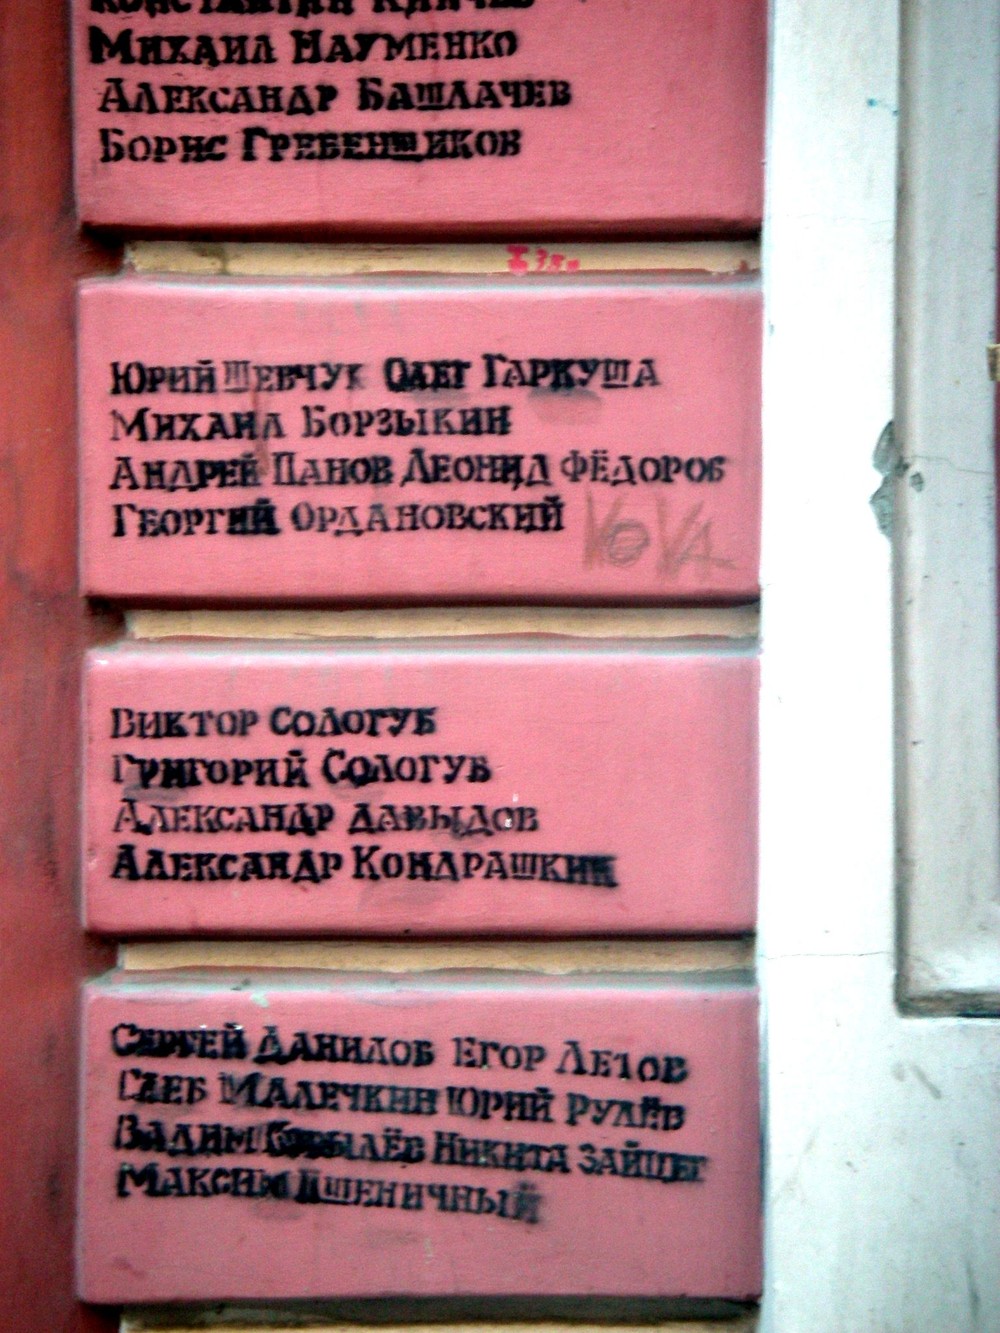 Константин Кинчев
Михаил Науменко
Александр Башлачев
Борис Гребенщиков
Юрий Шевчук Олег Гаркуша
Михаил Борзыкин
Андрей Панов Леонид Фёдоров
Георгий Ордановский
VOVA
Виктор Сологуб
Григорий Сологуб
Александр Давыдов
Александр Кондрашкин
Сергей Данилов Егор Летов
Глеб Малечкин Юрий Рулёв
Вадим Никита Зайцев
Максим Пшеничный